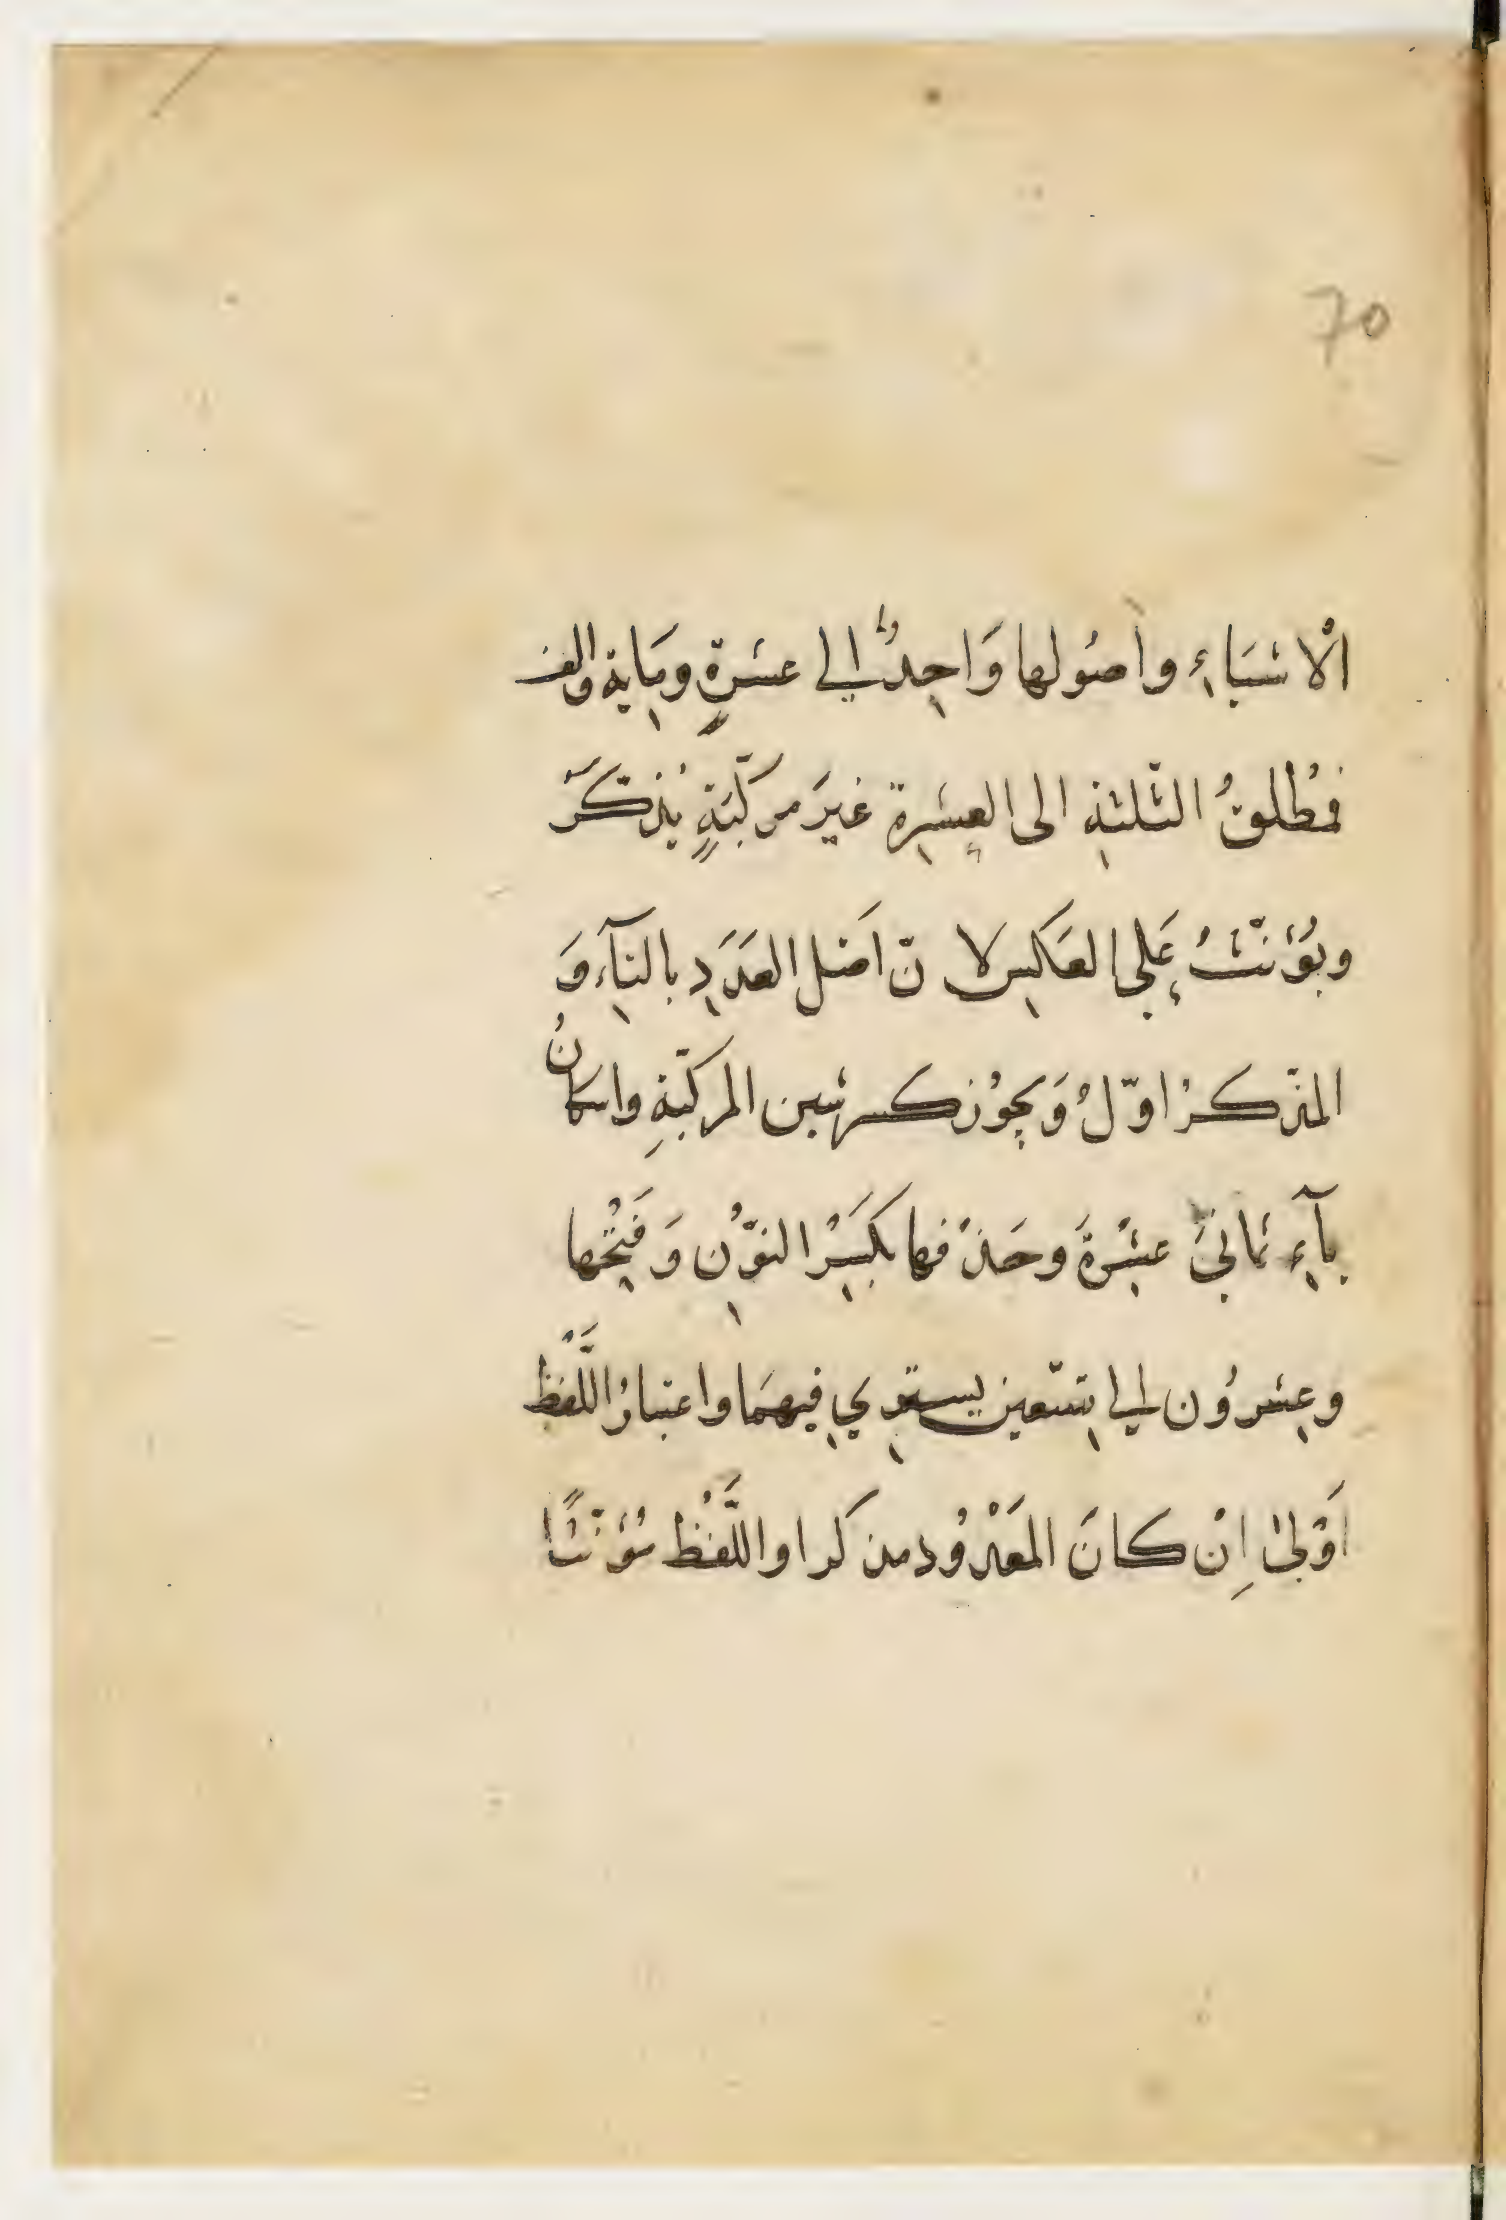 70
الْاشيَاءِ واصُولها وَاحِدٌ الي عشرةٍ ومِاية والف
فمُطلقُ الثّلثةِ الى العشرِة غيرَ مركّبَةٍ يُذكّرُ
ويُؤنّثُ عَلي العَكسِ لانّ اَصْل العَدَدِ بالتآءِ وَ
المذّكرُ اوّلُ وَيجُوْز كسر شين المركبّةِ واسكانُ
يآءِ ثمانيَ عشْرةَ وحَذْفها بكَسْرِ النّوُنِ وَفَتْحِها
وعِشروُن الي تِسّعين يستوِي فيهمَا واعتبارُ اللَّفْظِ
اَوْلىٰ اِنْ كانَ المَعْدوُد مذكرا واللَّفْظُ مُؤنّثًا